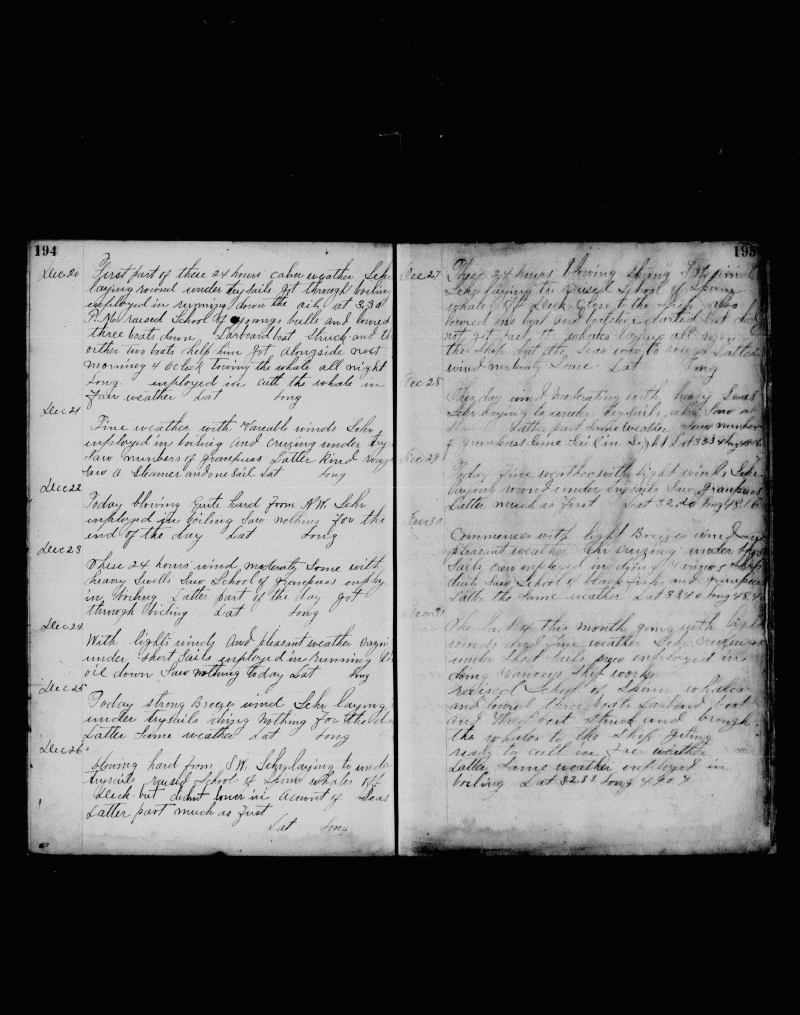 194
Dec 20 First part of these 24 hours calm weather Schr
laying round under trysails got through boiling
employed in running down the oil at 3,30
P.M. raised School of youngs bulls and lowred
three boats down Larboard boat Struck and th
orther two boats help him got alongside next
morning 4 oclock towing the whale all night
Long. employed in cutt the whale in
Fair weather Lat Long
Dec 21
Fine weather with Vareable winds Schr
employed in boiling and cruzing under try
Saw numbers of grampuss Latter Kind
Saw a Steamer and one Sail Lat Long
Dec 22
Today blowing quite hard from N.W. Schr
employed in boiling Saw nothing For the
end of the day Lat Long
Dec 23
These 24 hours wind moderate Some with
heavy Swells Saw School of grampuss
in boiling Latter part of the day got
through boiling Lat Long
Dec 24
With light winds and pleasant weather
under Short Sails employed in running
oil down Saw nothing today Lat Long
Dec 25
Today strong Breeze wind Schr laying
under trysails doing nothing For the d
Latter Same weather Lat Long
Dec 26
blowing hard from S.W. Schr laying to under
trysails raised School of Sperm whales off
Deck but didnt lower in account of Seas
Latter part much as First
Lat Long
195
Dec 27 These 24 hours blowing Strong
Schr laying to raised School of Sperm
whales off Deck Close to the Ship
lowred one boat and
not get fast whales laying all
the Ship but the Seas was to Latter
wind moderate Some Lat Long
Dec 28
This day wind moderating with heavy Seas
Schr laying to under trysails
Latter part Same weather Saw number
of grampuss Same Sail in Sight Lat 3334
Dec 29
Today Fine weather with light winds Schr
laying round under trysails Saw grampuss
Latter much as First Lat 32,20 Long 48,16
Dec 30
Commences with light Breezes wind and
pleasant weather Schr cruzing under Short
Sails crew employed in doing various Ship
duts Saw School of blackfish and grampuss
Latter the Same weather Lat 3340 Long
Dec 31
The last of this month going with light
winds and Fine weather Schr cruzing
under Short Sails crew employed in
doing Various Ship works
raised School of Sperm whales
and lowred three boats Larboard boat
and Waist boat Struck and brough
the whales to the Ship geting
ready to cutt in Fair weather
Latter Same weather employed in
boiling Lat 3233 Long 4907